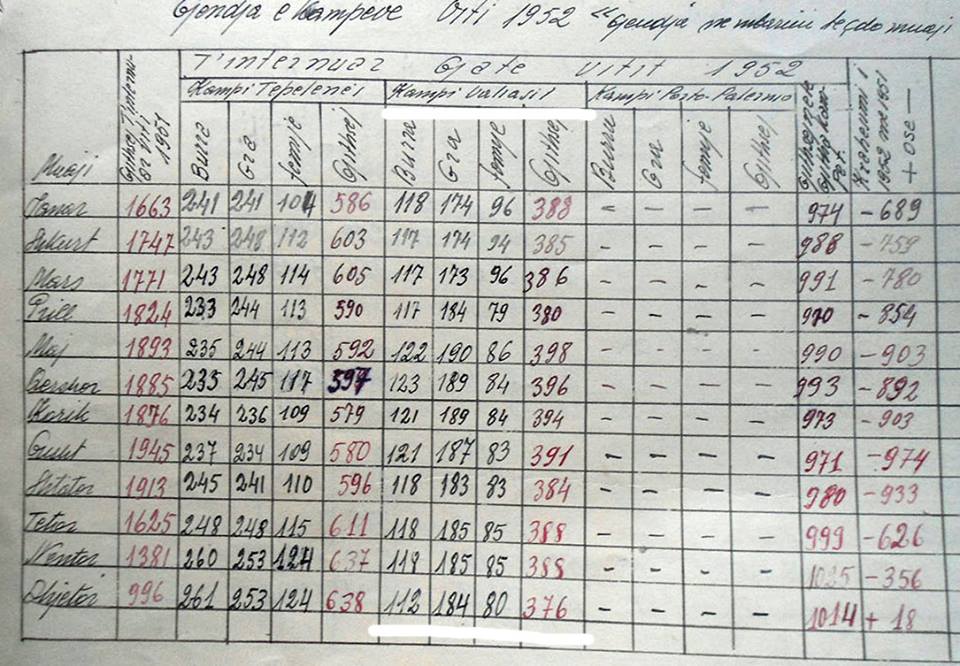 Gjendja e Kampeve Viti 1952 "Gjendja ne mbarim te çdo muaji
T'internuar Gjate vitit 1952
Kampi Tepelenës Kampi Valiasit Kampi Porto-Palermo
Muaji Gjithsej Burra Gra femije Gjithsej Burra Gra femije Gjithsej Burra Gra femije Gjithsej
1952 me 1951 + ose -
Janar 1663 241 241 104 586 118 174 96 388 - - - - 974 - 689
Shkurt 1747 243 248 112 603 117 174 94 385 - - - - 988 - 759
Mars 1771 243 248 114 605 117 173 96 386 - - - - 991 - 780
Prill 1824 233 244 113 590 117 184 79 380 - - - - 970 - 854
Maj 1893 235 244 113 592 122 190 86 398 - - - - 990 - 903
Qershor 1885 235 245 117 597 123 189 84 396 - - - - 993 - 892
Korik 1876 234 236 109 579 121 189 84 394 - - - - 973 - 903
Gusht 1945 237 234 109 580 121 187 83 391 - - - - 971 - 974
Shtator 1913 245 241 110 596 118 183 83 384 - - - - 980 - 933
Tetor 1625 248 248 115 611 118 185 85 388 - - - - 999 - 626
Nentor 1381 260 253 124 637 118 185 85 388 - - - - 1025 - 356
Dhjetor 996 261 253 124 638 112 184 80 376 - - - - 1014 + 18